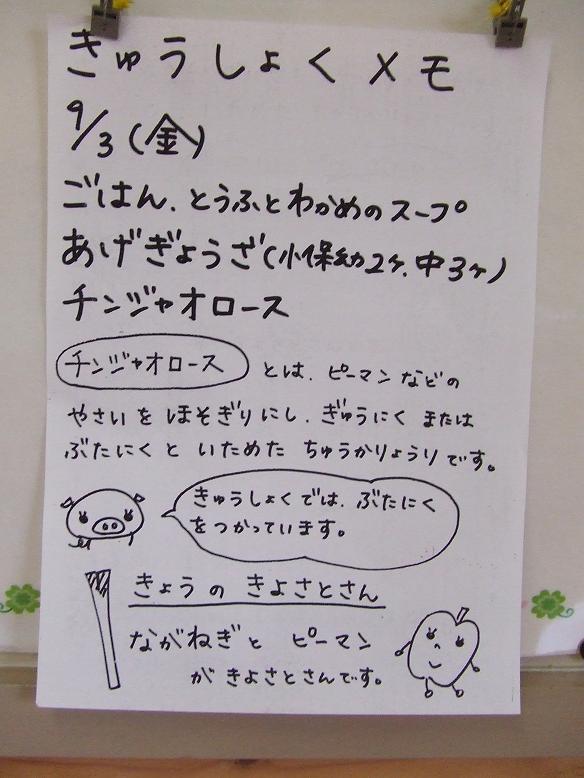 きゅうしょくメモ
9/3(金)
ごはん、とうふとわかめのスープ
あげぎょうざ(小保幼2ヶ、中3ヶ)
チンジャオロース
チンジャオロース とは、ピーマンなどの
やさいを ほそぎりにし、ぎゅうにく または
ぶたにくと いためた ちゅうかりょうりです。
きゅうしょくでは、ぶたにく
をつかっています。
きょうの きよさとさん
ながねぎと ピーマン
が きよさとさんです。